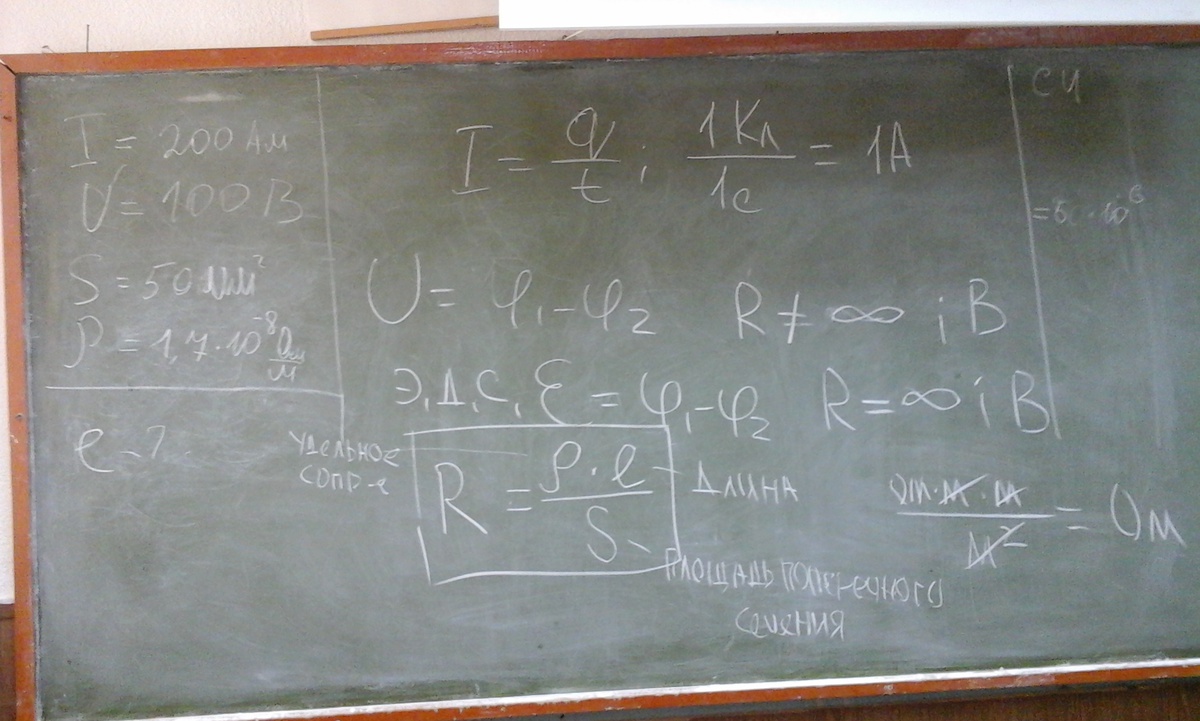 I = 200 Ам
U = 100 В
S = 50 мм²
ρ = 1,7·10⁻⁸ Ом/м
ℓ - ?
I = q/t ; 1 Кл/1с = 1А
U = φ₁-φ₂ R ≠ ∞ ; В
Э,Д,С, ℰ = φ₁-φ₂ R = ∞ ; В
удельное
сопр-е
R = ρ·ℓ/S
длина
площадь поперечного
сечения
Ом·м·м/м² = Ом
СИ